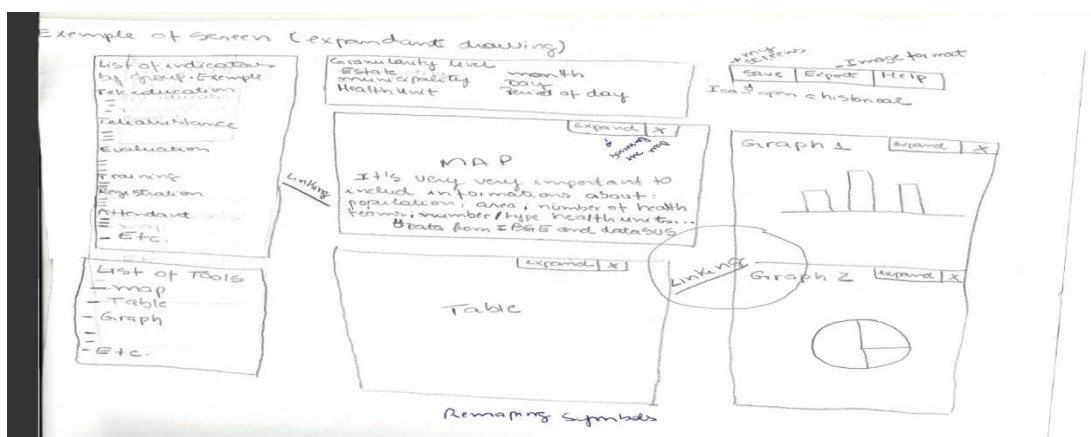 Exemple of screen (expandants drawing)
List of indicators
by group. Exemple
Tek education
Teleassistance
Evaluation
Training
Registration
Attendant
- Etc.
Linking
List of Tools
- map
- Table
- Graph
- Etc.
Granularity level
Estate
municipality
Health Unit
month
Day
Period of day
my
screens
Image format
Save | Export | Help
I can open a historical
expand | X
the map
MAP
It's very very important to
includ informations about:
population; area; number of health
teams; number/type health units...
Data from IBGE and datasus
expand | X
Table
Linking
Graph 1
expand | X
Graph 2
expand | X
Remaping Symbols